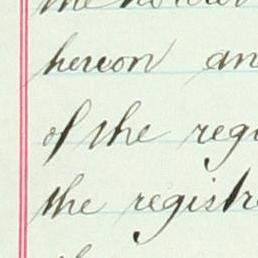 hereon an
of the regi
the registr